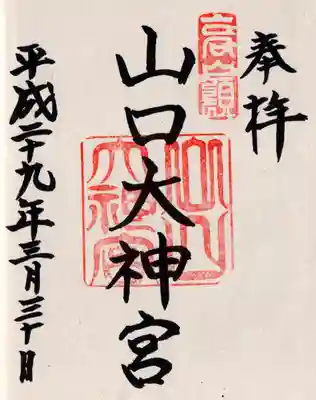 奉拝
高嶺
山口大神宮
山口大神宮
平成二十九年三月三十日